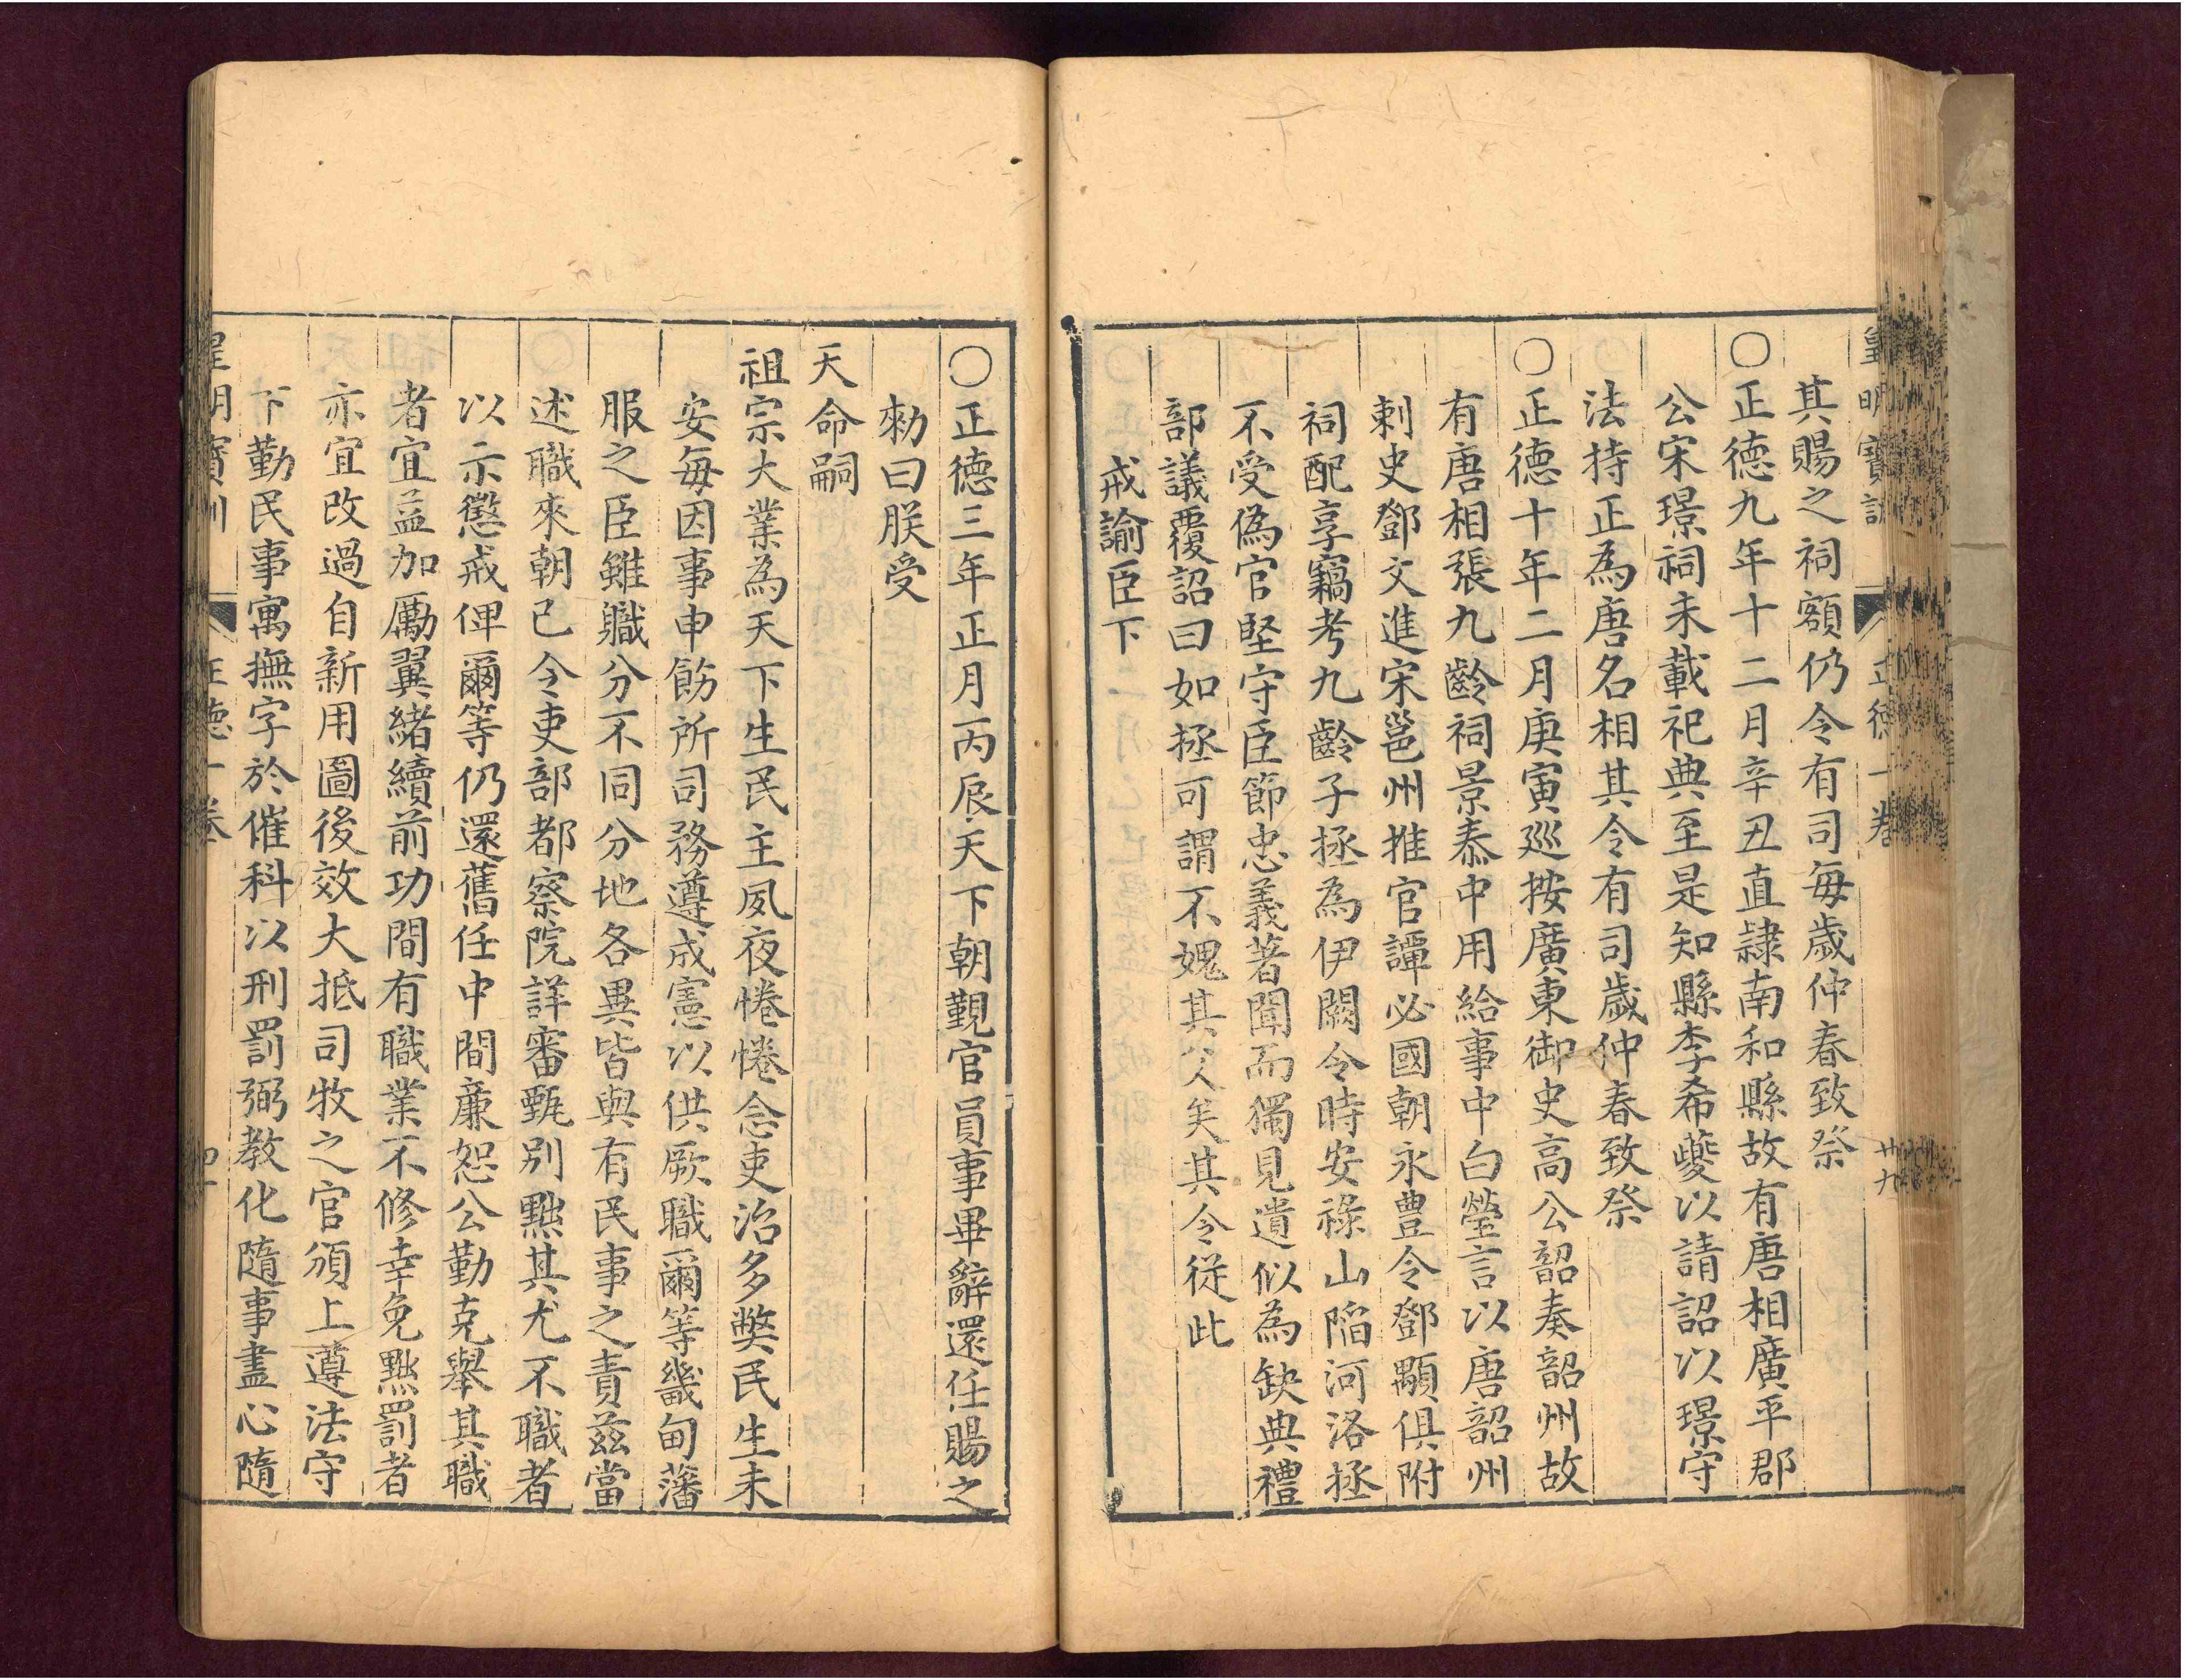 皇明寶訓 正德一卷 廿九
其賜之祠額仍令有司每歲仲春致祭
○正德九年十二月辛丑直隸南和縣故有唐相廣平郡
公宋璟祠未載祀典至是知縣李希夔以請詔以璟守
法持正為唐名相其令有司歲仲春致祭
○正德十年二月庚寅巡按廣東御史高公韶奏韶州故
有唐相張九齡祠景泰中用給事中白瑩言以唐韶州
剌史鄧文進宋邕州推官譚必國朝永豊令鄧顒俱附
祠配享竊考九齡子拯為伊闕令時安祿山陷河洛拯
不受偽官堅守臣節忠義著聞而獨見遺似為缺典禮
部議覆詔曰如拯可謂不媿其父矣其令從此
戒諭臣下
○正德三年正月丙辰天下朝覲官員事畢辭還任賜之
勑曰朕受
天命嗣
祖宗大業為天下生民主夙夜惓惓念吏治多獘民生未
安每因事申飭所司務遵成憲以供厥職爾等畿甸藩
服之臣雖職分不同分地各異皆與有民事之責茲當
述職來朝已令吏部都察院詳審甄别黜其尤不職者
以示懲戒俾爾等仍還舊任中間廉恕公勤克舉其職
者宜益加勵翼緒續前功間有職業不修幸免黜罰者
亦宜改過自新用圖後效大抵司牧之官頒上遵法守
下勤民事寓撫字於催科以刑罰弼教化隨事盡心隨
皇明寶訓 正德一卷